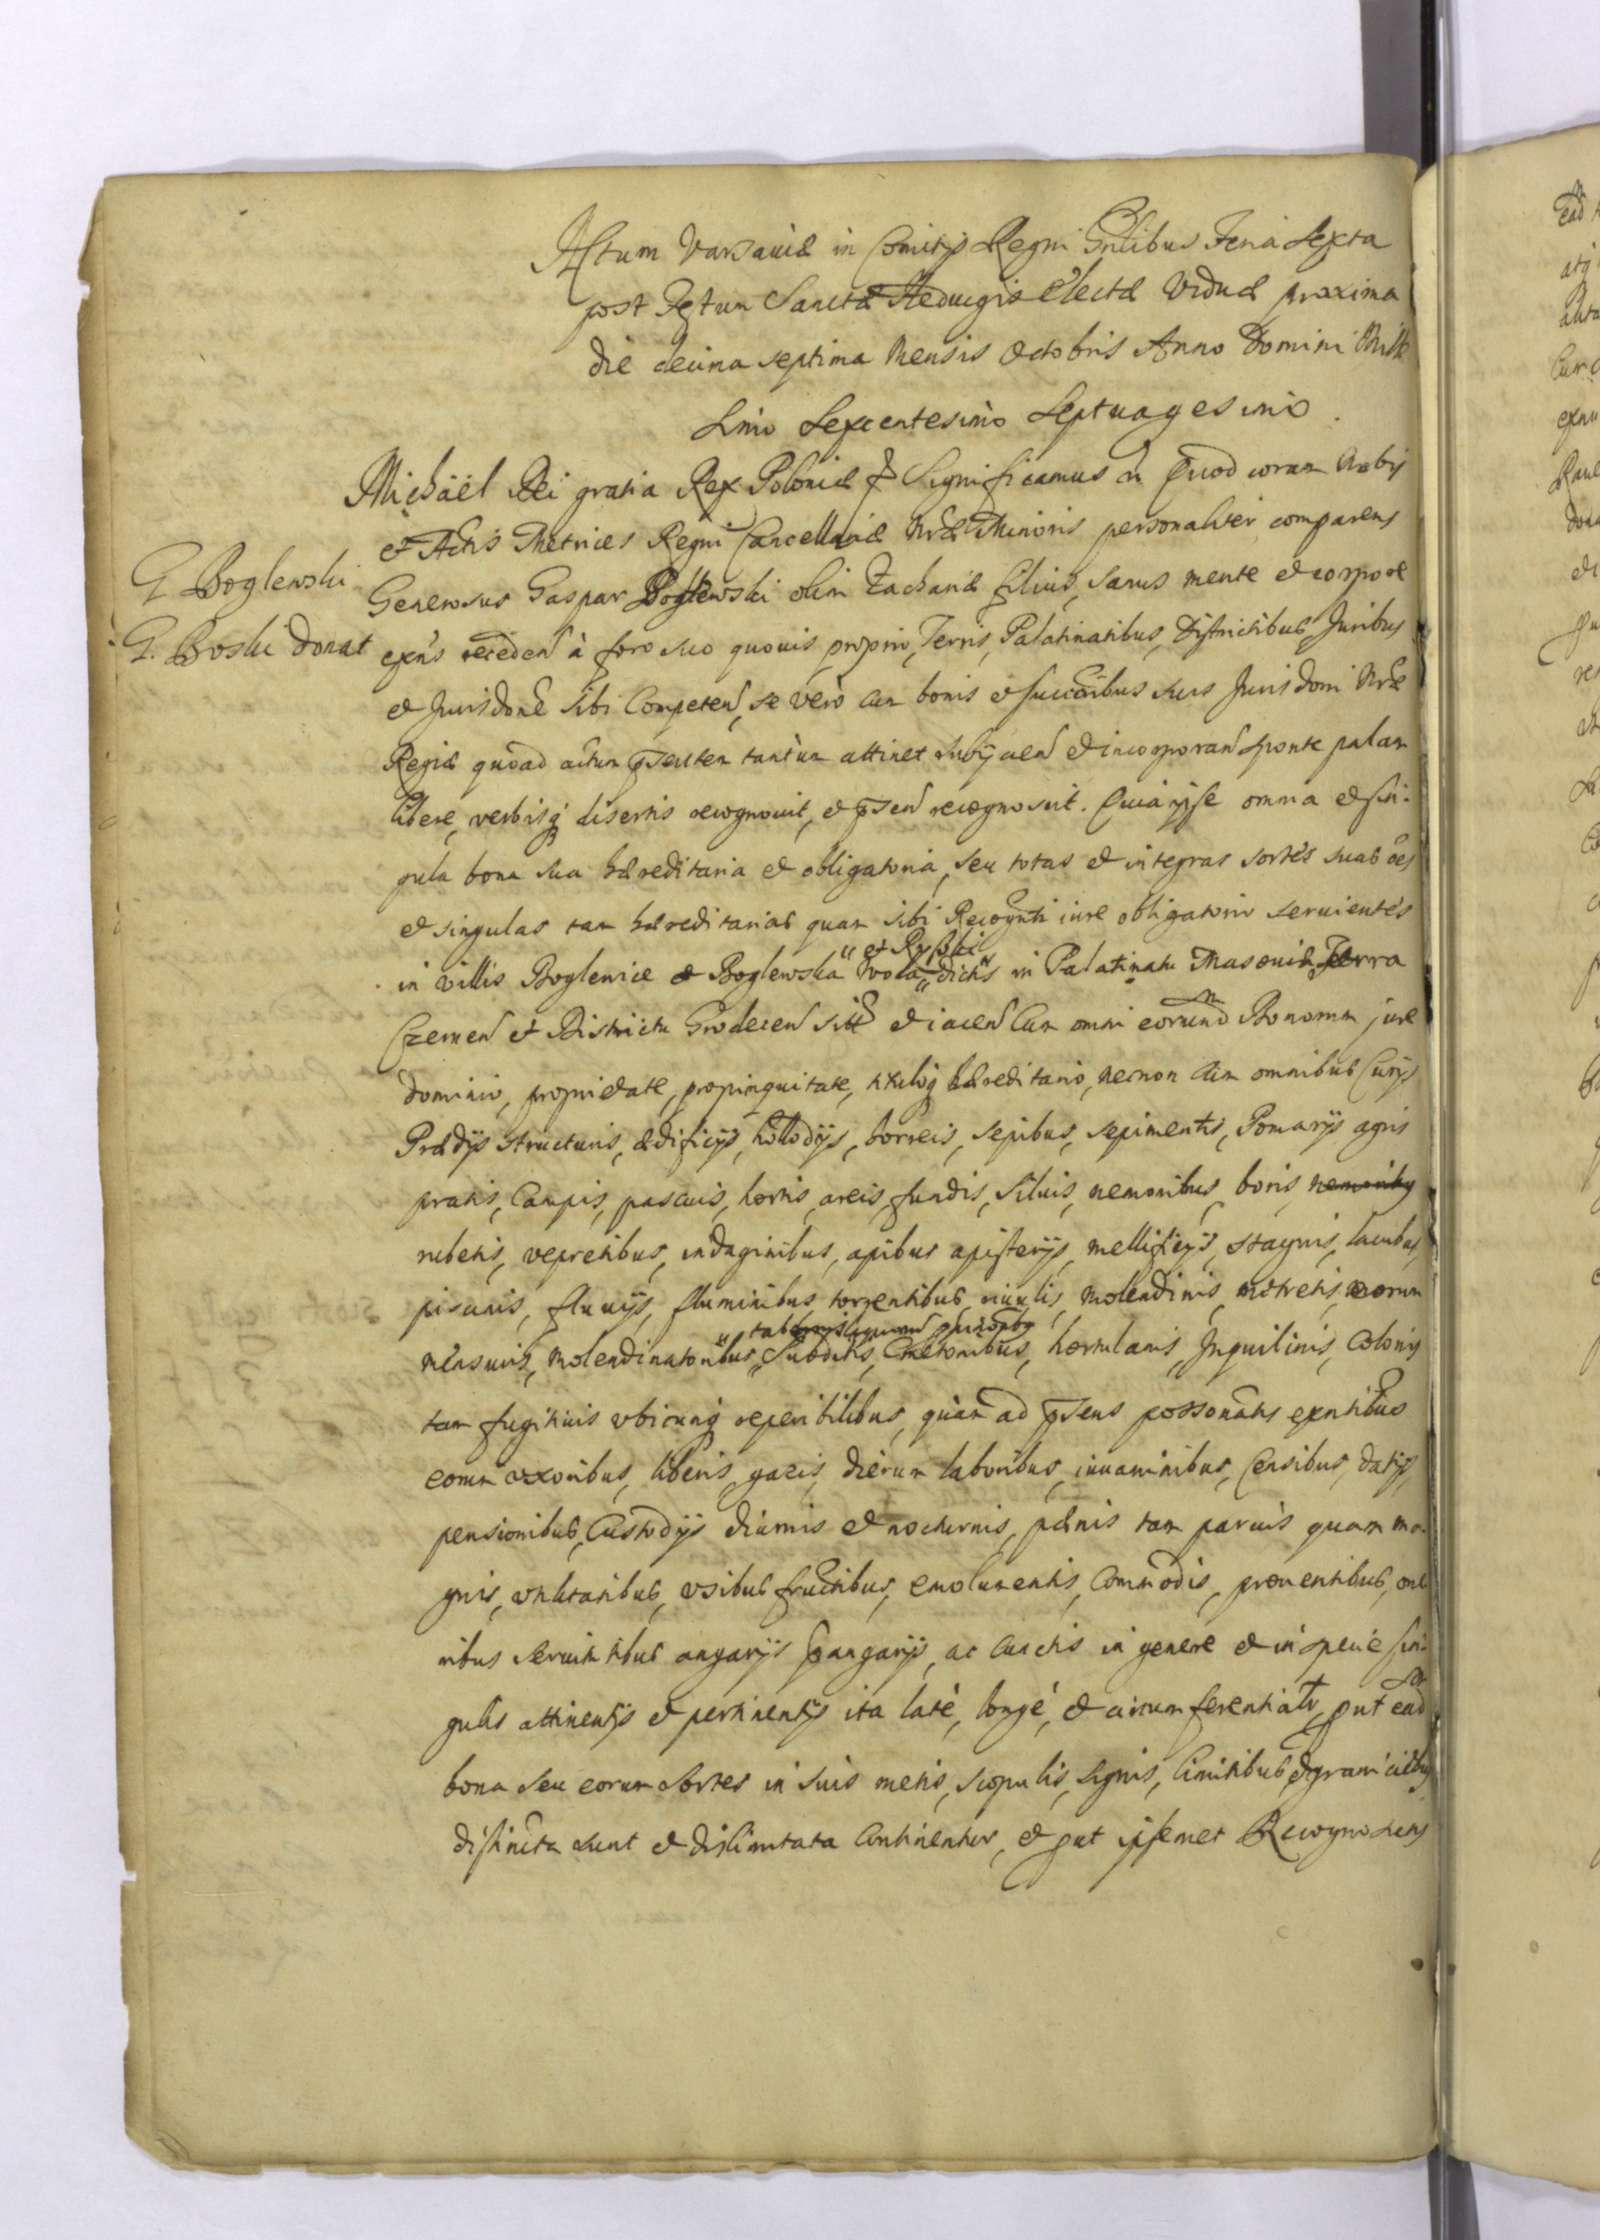 Actum Varsaviæ in Comitijs Regni Gnlibus Feria Sexta
post Festum Sanctæ Heduigis Electæ Viduæ proxima
die decima septima Mensis Octobris Anno Domini Mille
simo Sexcentesimo Septuagesimo.
Michaël Dei gratia Rex Poloniæ Significamus Quod coram
et Actis Metrices Regni Cancellariæ Nræ Minoris personaliter comparens
G. Boglewski
Generosus Gaspar Boglewski olim Zachariæ filius, sanus mente et corpore
G. Boski donat
exns receden à foro suo quouis proprio, Terris, Palatinatibus, Districtibus Juribus
et Jurisdone sibi Competen, se vero cum bonis et succoribus suis Jurisdoni Nræ
Regiæ quoad actum psentem tantum attinet subijcien et incorporan sponte palam
libere, verbisq disertis recognouit, et psen recognoscit. Quia ipse omnia et sin-
gula bona sua hæreditaria et obligatoria, seu totas et integras sortes suas oes
et singulas tam hæreditarias quam sibi Recognti iure obligatorio seruientes
et Rysski
in villis Boglewice et Boglewska Wola dictis in Palatinatu Masouiæ Terra
Czernen et Districtu Grodecen sitt et iacen Cum omni eorund Bonorum jure
dominio, proprietate, propinquitate, tituloq hæreditario, necnon Cum omnibus Curijs
Prædijs structuris, ædificijs, horreis, sepibus, sepimentis, Pomarijs agris
pratis, Campis, pascuis, hortis, areis, fundis, siluis, nemoribus, boris nemoribus
rubetis, vepretibus, indaginibus, apibus apisterijs, mellificijs, stagnis, lacubus,
piscinis, fluuijs, fluminibus, torrentibus, riuulis, molendinis, metretis, eorum
mensuris, molendinatoribus, Subditis, Cmetonibus, hortulanis, Inquilinis, Colonis
tam fugitiuis vbicunq reperibilibus, quàm ad psens possonatis exntibus
eorum vxoribus, liberis, gazis, dierum laboribus, iuuaminibus, Censibus, datijs,
pensionibus, Custodijs diurnis et nocturnis, pænis tam paruis quam ma-
gnis, vtilitatibus, vsibus fructibus, emolumentis, Commodis, prouentibus, one
ribus seruitutibus angarijs pangarijs, ac cunctis in genere et in specie sin-
gulis attinentijs et pertinentijs ita latè, longè, et circumferentialr, put ead
bona seu eorum sortes in suis metis, scopulis, signis, limitibus, et granicieby
distincta sunt et dislimitata Continentur, et put ipsemet Recognoscens